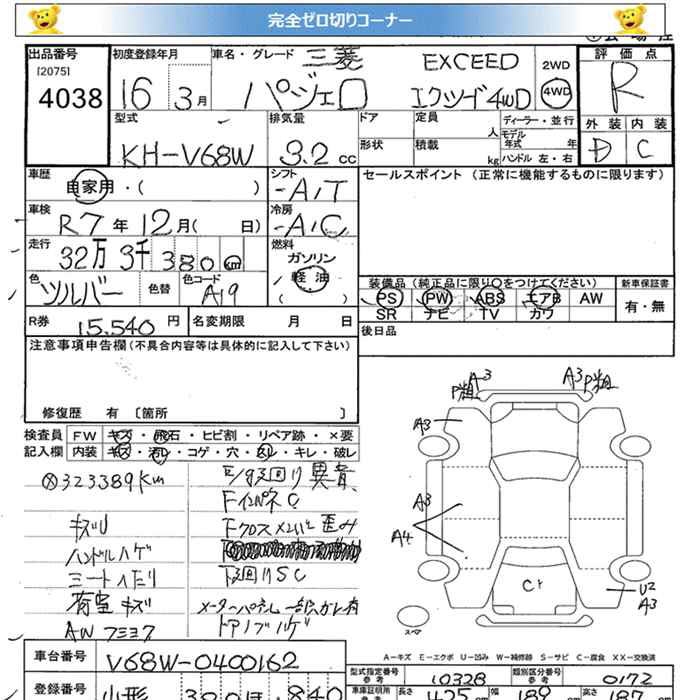 完全ゼロ切りコーナー
出品番号
[2075]
4038
初度登録年月
16 3月
車名・グレード
三菱 EXCEED
パジェロ エクシード4WD
2WD
4WD
評価点
R
外装 内装
D C
型式
KH-V68W
排気量
3.2 cc
ドア
形状
定員
人
積載
kg
ディーラー・並行
モデル年式 年
ハンドル 左・右
車歴
自家用・( )
シフト
-A/T
車検
R7年 12月( 日)
冷房
-A/C
走行
32万 3千 380 km
燃料
ガソリン
軽油
( )
色
シルバー
色替
色コード
A19
R券
15,540 円
名変期限 月 日
セールスポイント (正常に機能するものに限ります)
装備品 (純正品に限り○をつけてください)
PS PW ABS エアB AW
SR ナビ TV カワ
新車保証書
有・無
後日品
注意事項申告欄(不具合内容等は具体的に記入して下さい)
修復歴 有 〔箇所 〕
検査員記入欄
FW キズ・飛石・ヒビ割・リペア跡・×要
内装 キズ・汚レ・コゲ・穴・スレ・キレ・破レ
323389Km
キズU
ハンドルハゲ
シートヘタリ
荷室キズ
AWフミヨフ
E/g廻り異音
FインパネC
Fクロスメンバー歪み
下廻りSC
ドアノブハゲ
A3
A3
A3
A3
A4
Cr
U2
A3
スペア
A-キズ E-エクボ U-凹み W-補修跡 S-サビ C-腐食 XX-交換済
車台番号
V68W-0400162
登録番号
山形
型式指定番号
参考
10328
類別区分番号
参考
0172
車庫証明用
参考
長さ
425
cm
幅
189
cm
高さ
187
cm